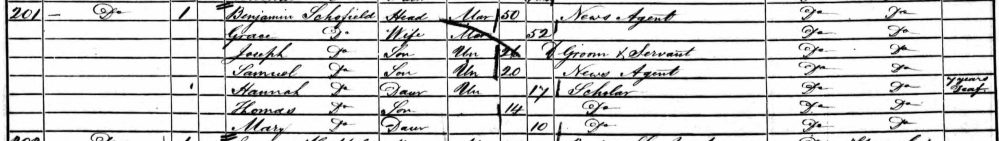 201 — Do 1 Benjamin Schofield Head Mar 50 News Agent Do Do
Grace Do Wife Mar 52 Do Do
Joseph Do Son Un 26 Groom & Servant Do Do
Samuel Do Son Un 20 News Agent Do Do
Hannah Do Daur Un 17 Scholar Do Do 7 years Deaf
Thomas Do Son 14 Do Do Do
Mary Do Daur 10 Do Do Do